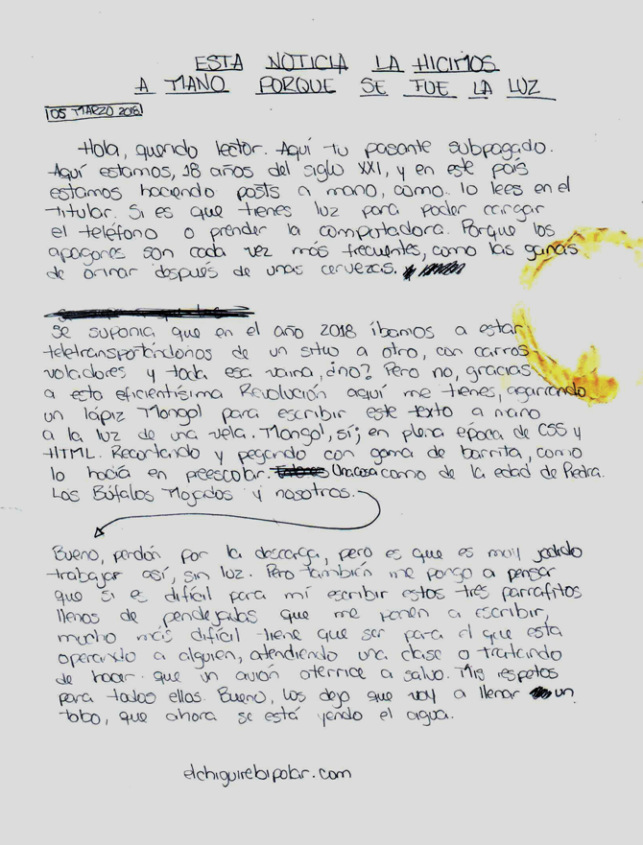 ESTA NOTICIA LA HICIMOS
A MANO PORQUE SE FUE LA LUZ
05 MARZO 2018
Hola, querido lector. Aquí tu pasante subpagado.
Aquí estamos, 18 años del siglo XXI, y en este país
estamos haciendo posts a mano, como lo lees en el
titular. Si es que tienes luz para poder cargar
el teléfono o prender la computadora. Porque los
apagones son cada vez más frecuentes, como las ganas
de orinar después de unas cervezas.
Se suponia que en el año 2018 íbamos a estar
teletransportándonos de un sitio a otro, con carros
voladores y toda esa vaina, ¿no? Pero no, gracias
a esta eficientísima Revolución aquí me tienes, agarrando
un lápiz Mongol para escribir este texto a mano
a la luz de una vela. Mongol, sí; en plena época de CSS y
HTML. Recortando y pegando con goma de barrita, como
lo hacía en preescolar. Una cosa como de la edad de Piedra.
Los Búfalos Mojados y nosotros.
Bueno, perdón por la descarga, pero es que es muy jodido
trabajar así, sin luz. Pero también me pongo a pensar
que si es difícil para mí escribir estos tres parrafitos
llenos de pendejadas que me ponen a escribir,
mucho más difícil tiene que ser para el que está
operando a alguien, atendiendo una clase o tratando
de hacer que un avión aterrice a salvo. Mis respetos
para todos ellos. Bueno, los dejo que voy a llenar un
tobo, que ahora se está yendo el agua.
elchiguirebipolar.com